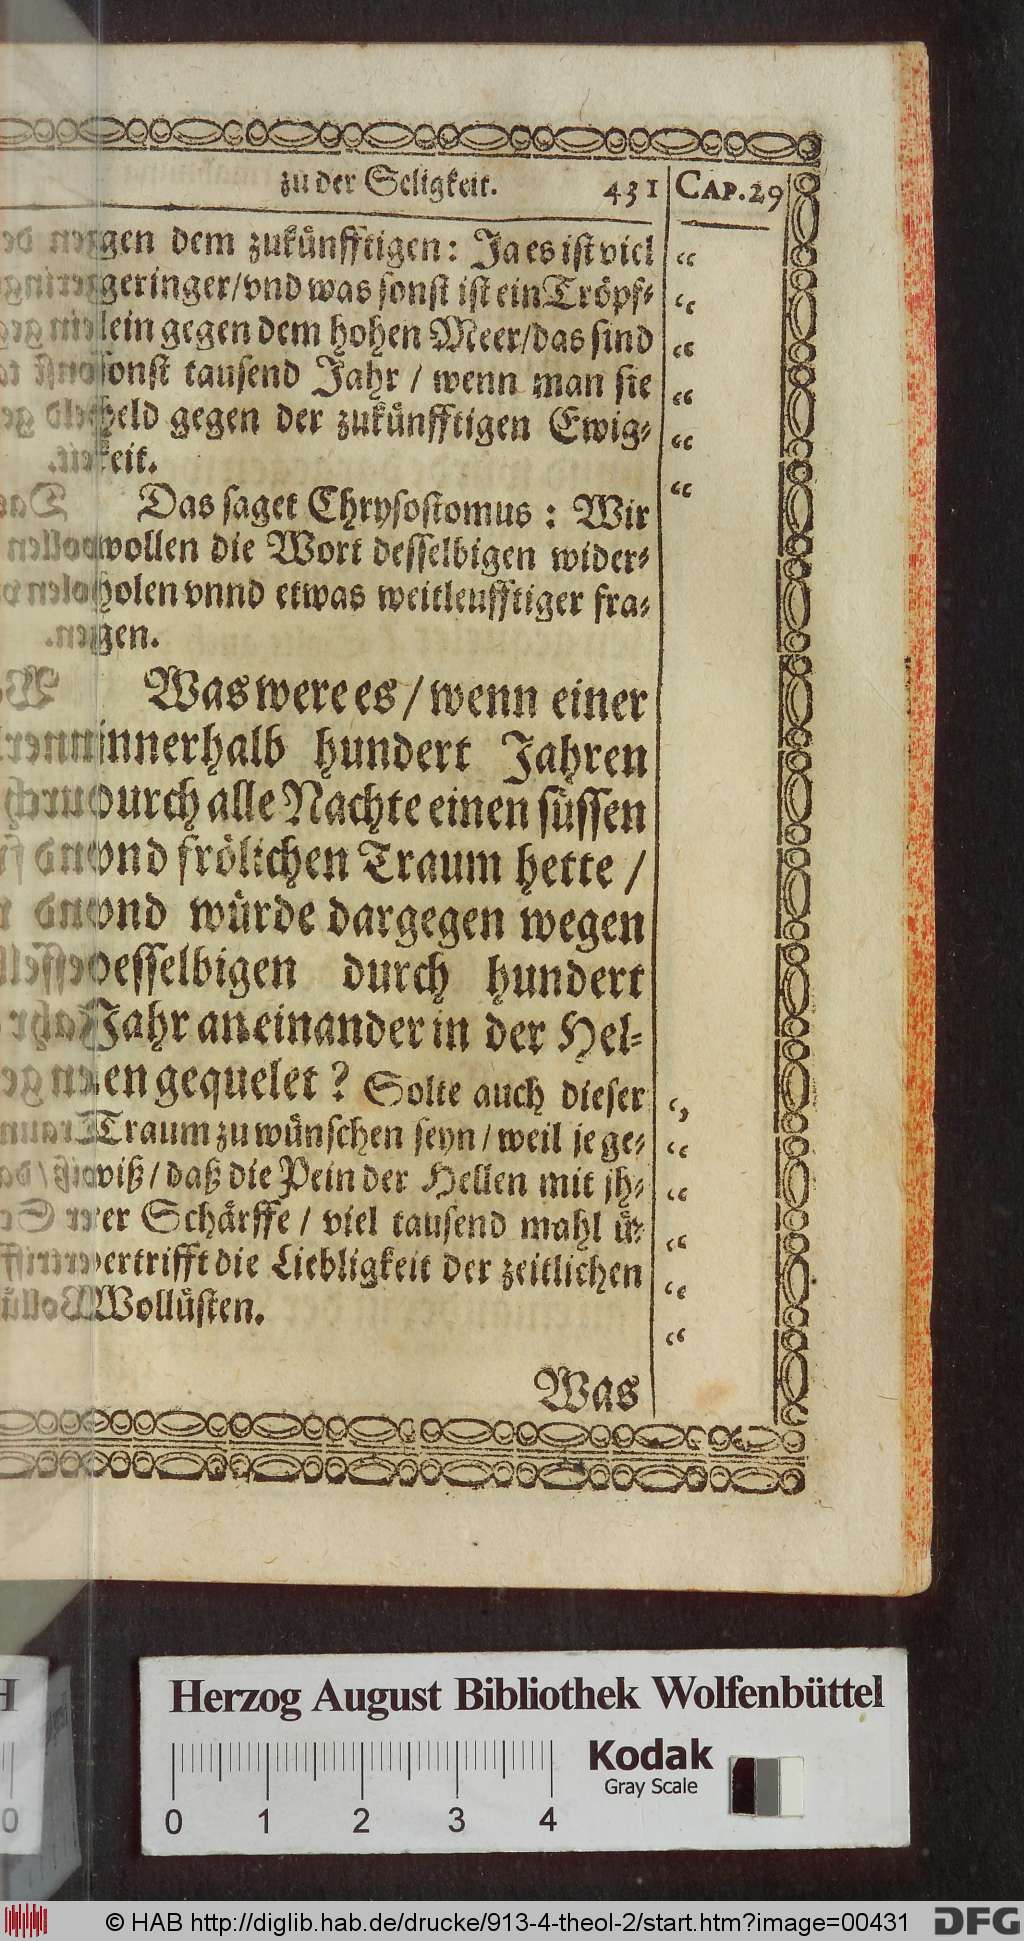 zu der Seligkeit. 431 CAP. 29
gen dem zukünfftigen: Ja es ist viel
geringer/vnd was sonst ist ein Tröpf-
lein gegen dem hohen Meer/das sind
sonst tausend Jahr / wenn man sie
held gegen der zukünfftigen Ewig-
keit.
Das saget Chrysostomus: Wir
wollen die Wort desselbigen wider-
holen vnnd etwas weitleufftiger fra-
gen.
Was were es / wenn einer
innerhalb hundert Jahren
durch alle Nachte einen süssen
vnd frölichen Traum hette /
vnd würde dargegen wegen
desselbigen durch hundert
Jahr aneinander in der Hel-
len gequelet? Solte auch dieser
Traum zu wünschen seyn / weil je ge-
wiß / daß die Pein der Hellen mit jh-
rer Schärffe / viel tausend mahl ü-
bertrifft die Liebligkeit der zeitlichen
Wollüsten.
Was
Herzog August Bibliothek Wolfenbüttel
Kodak
Gray Scale
0 1 2 3 4
© HAB http://diglib.hab.de/drucke/913-4-theol-2/start.htm?image=00431
DFG